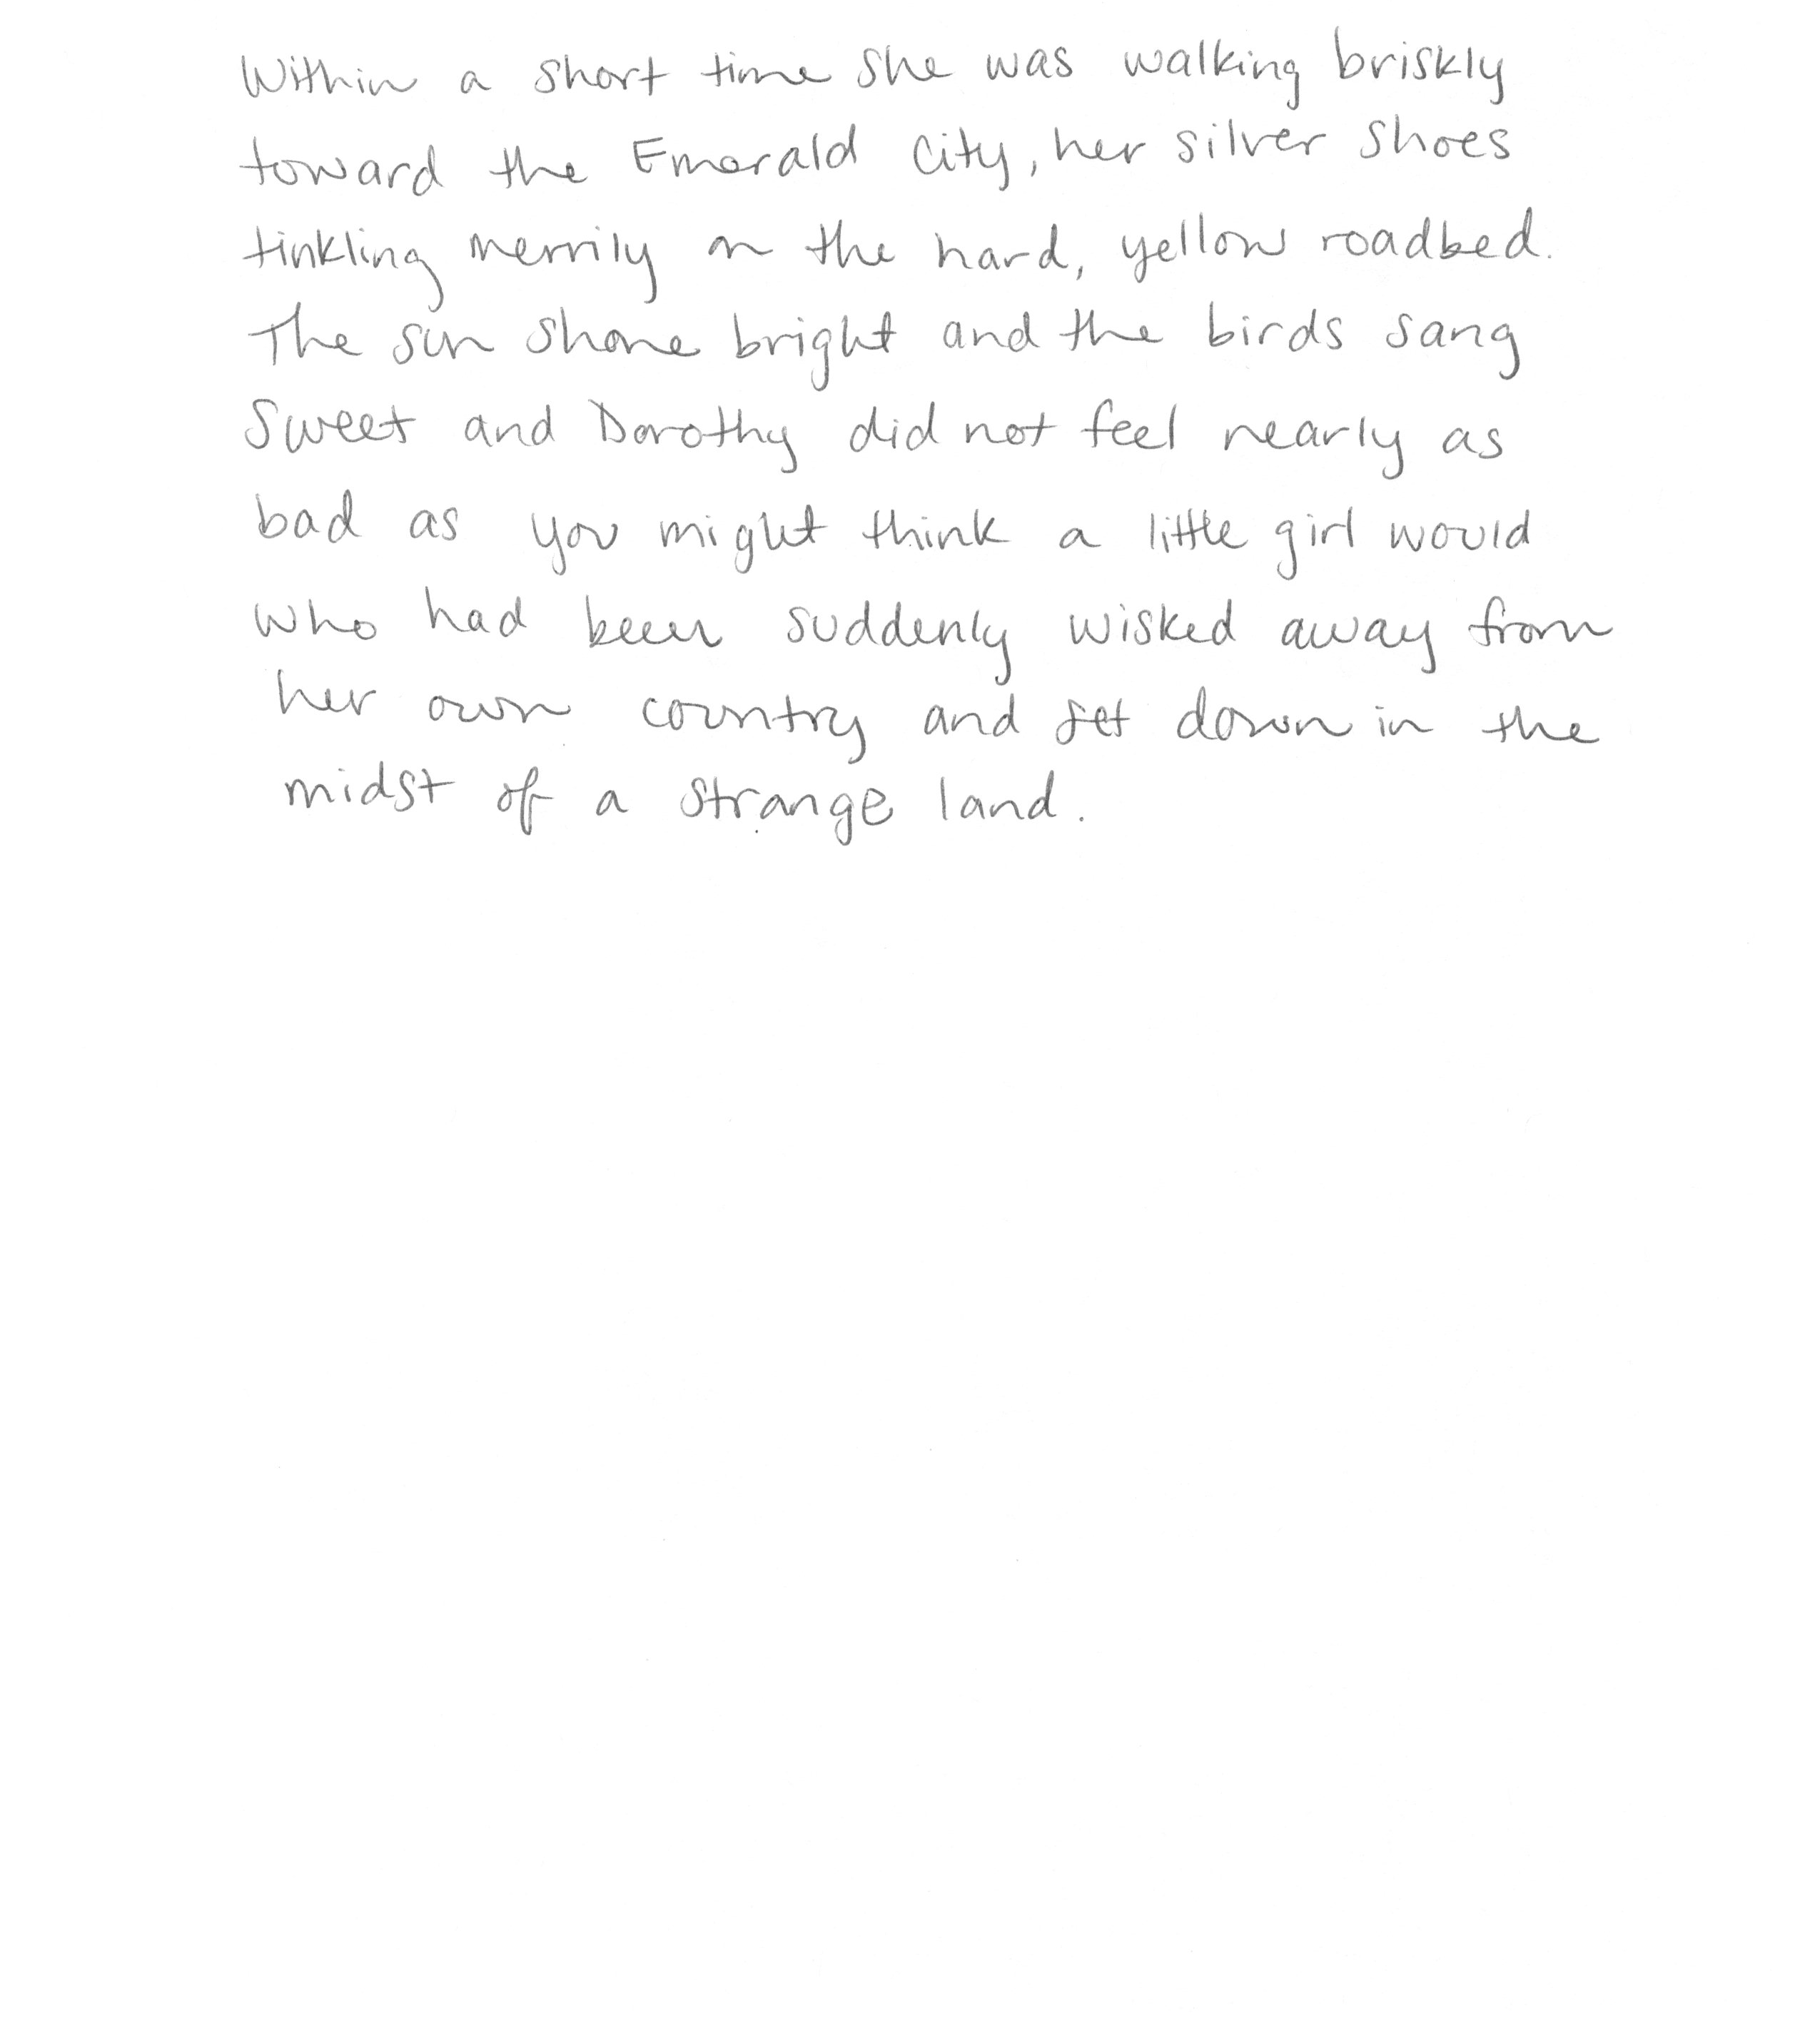 Within a short time she was walking briskly
toward the Emerald City, her silver shoes
tinkling merrily on the hard, yellow roadbed.
The sun shone bright and the birds sang
Sweet and Dorothy did not feel nearly as
bad as you might think a little girl would
who had been suddenly wisked away from
her own country and set down in the
midst of a strange land.